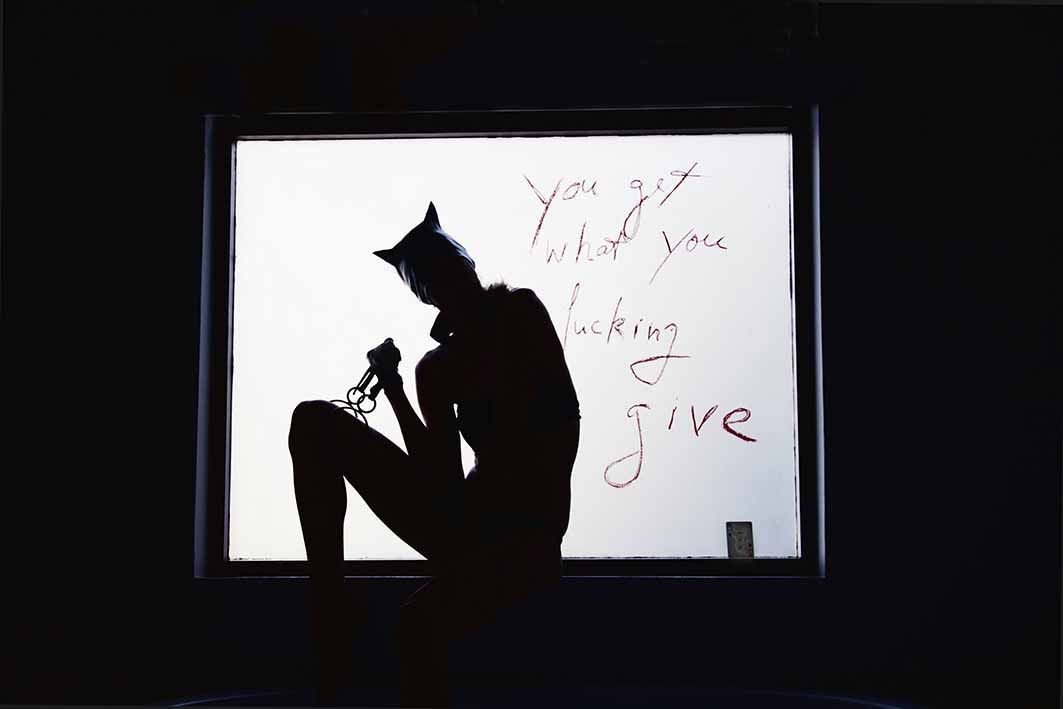 you get
what you
fucking
give